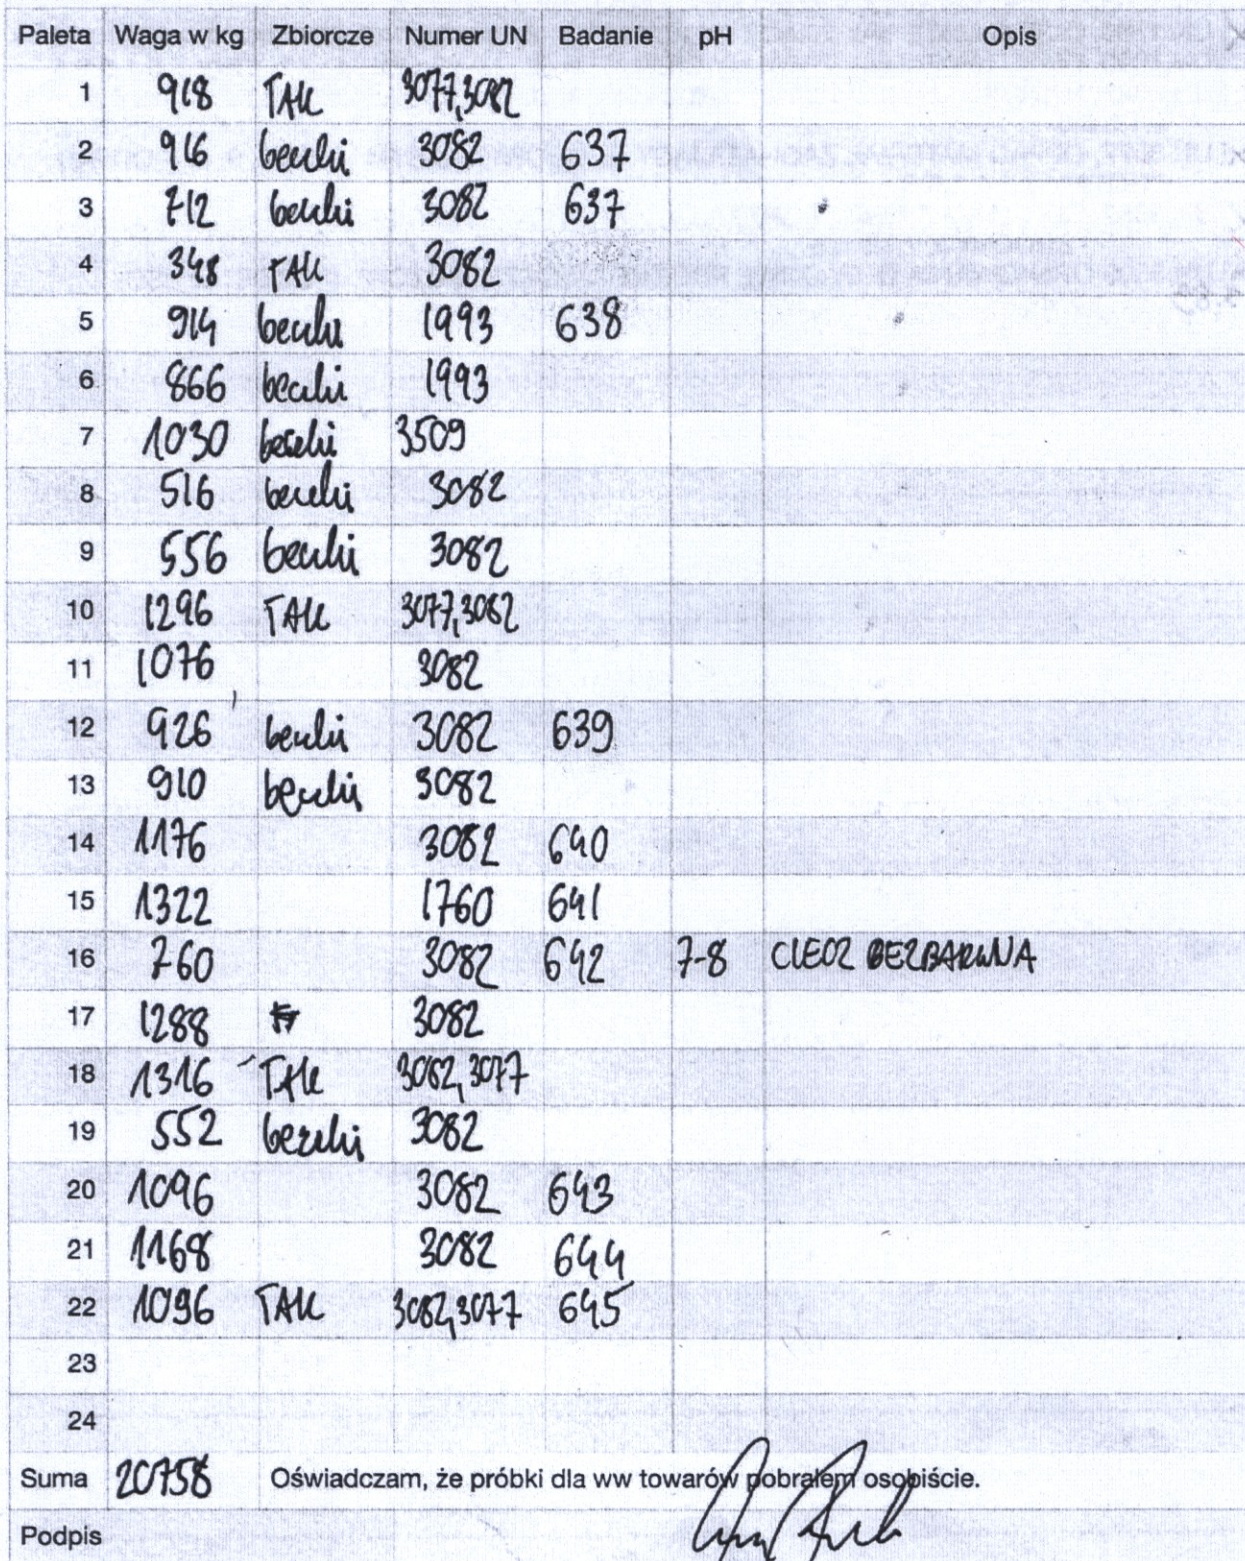 Paleta Waga w kg Zbiorcze Numer UN Badanie pH Opis
1 918 TAK 3077,3082
2 916 beczki 3082 637
3 712 beczki 3082 637
4 348 TAK 3082
5 914 beczki 1993 638
6 866 beczki 1993
7 1030 beczki 3509
8 516 beczki 3082
9 556 beczki 3082
10 1296 TAK 3077,3082
11 1076 3082
12 926 beczki 3082 639
13 910 beczki 3082
14 1176 3082 640
15 1322 1760 641
16 760 3082 642 7-8 CIECZ BEZBARWNA
17 1288 3082
18 1316 TAK 3082,3077
19 552 beczki 3082
20 1096 3082 643
21 1168 3082 644
22 1096 TAK 3082,3077 645
23
24
Suma 20758 Oświadczam, że próbki dla ww towarów pobrałem osobiście.
Podpis